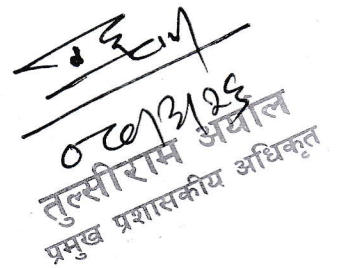 ०८०/३/२६
तुल्सीराम अर्याल
प्रमुख प्रशासकीय अधिकृत